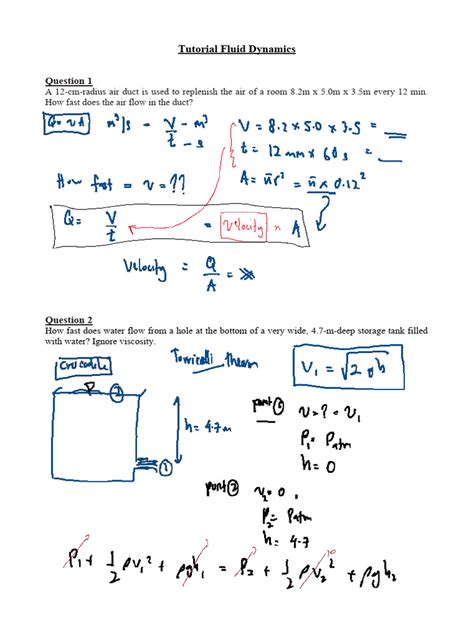 Tutorial Fluid Dynamics
Question 1
A 12-cm-radius air duct is used to replenish the air of a room 8.2m x 5.0m x 3.5m every 12 min.
How fast does the air flow in the duct?
Q = vA m³/s = V/t - m³/s
V = 8.2 x 5.0 x 3.5 =
t = 12 min x 60s =
A = πr² = π x 0.12²
How fast = v = ??
Q = V/t = velocity x A
Velocity = Q/A =
Question 2
How fast does water flow from a hole at the bottom of a very wide, 4.7-m-deep storage tank filled
with water? Ignore viscosity.
Torricelli theorem
V₁ = √2gh
②
h = 4.7m
①
point ① v = ? = v₁
P₁ = Patm
h = 0
point ② v₂ = 0,
P₂ = Patm
h = 4.7
P₁ + 1/2 ρv₁² + ρgh₁ = P₂ + 1/2 ρv₂² + ρgh₂